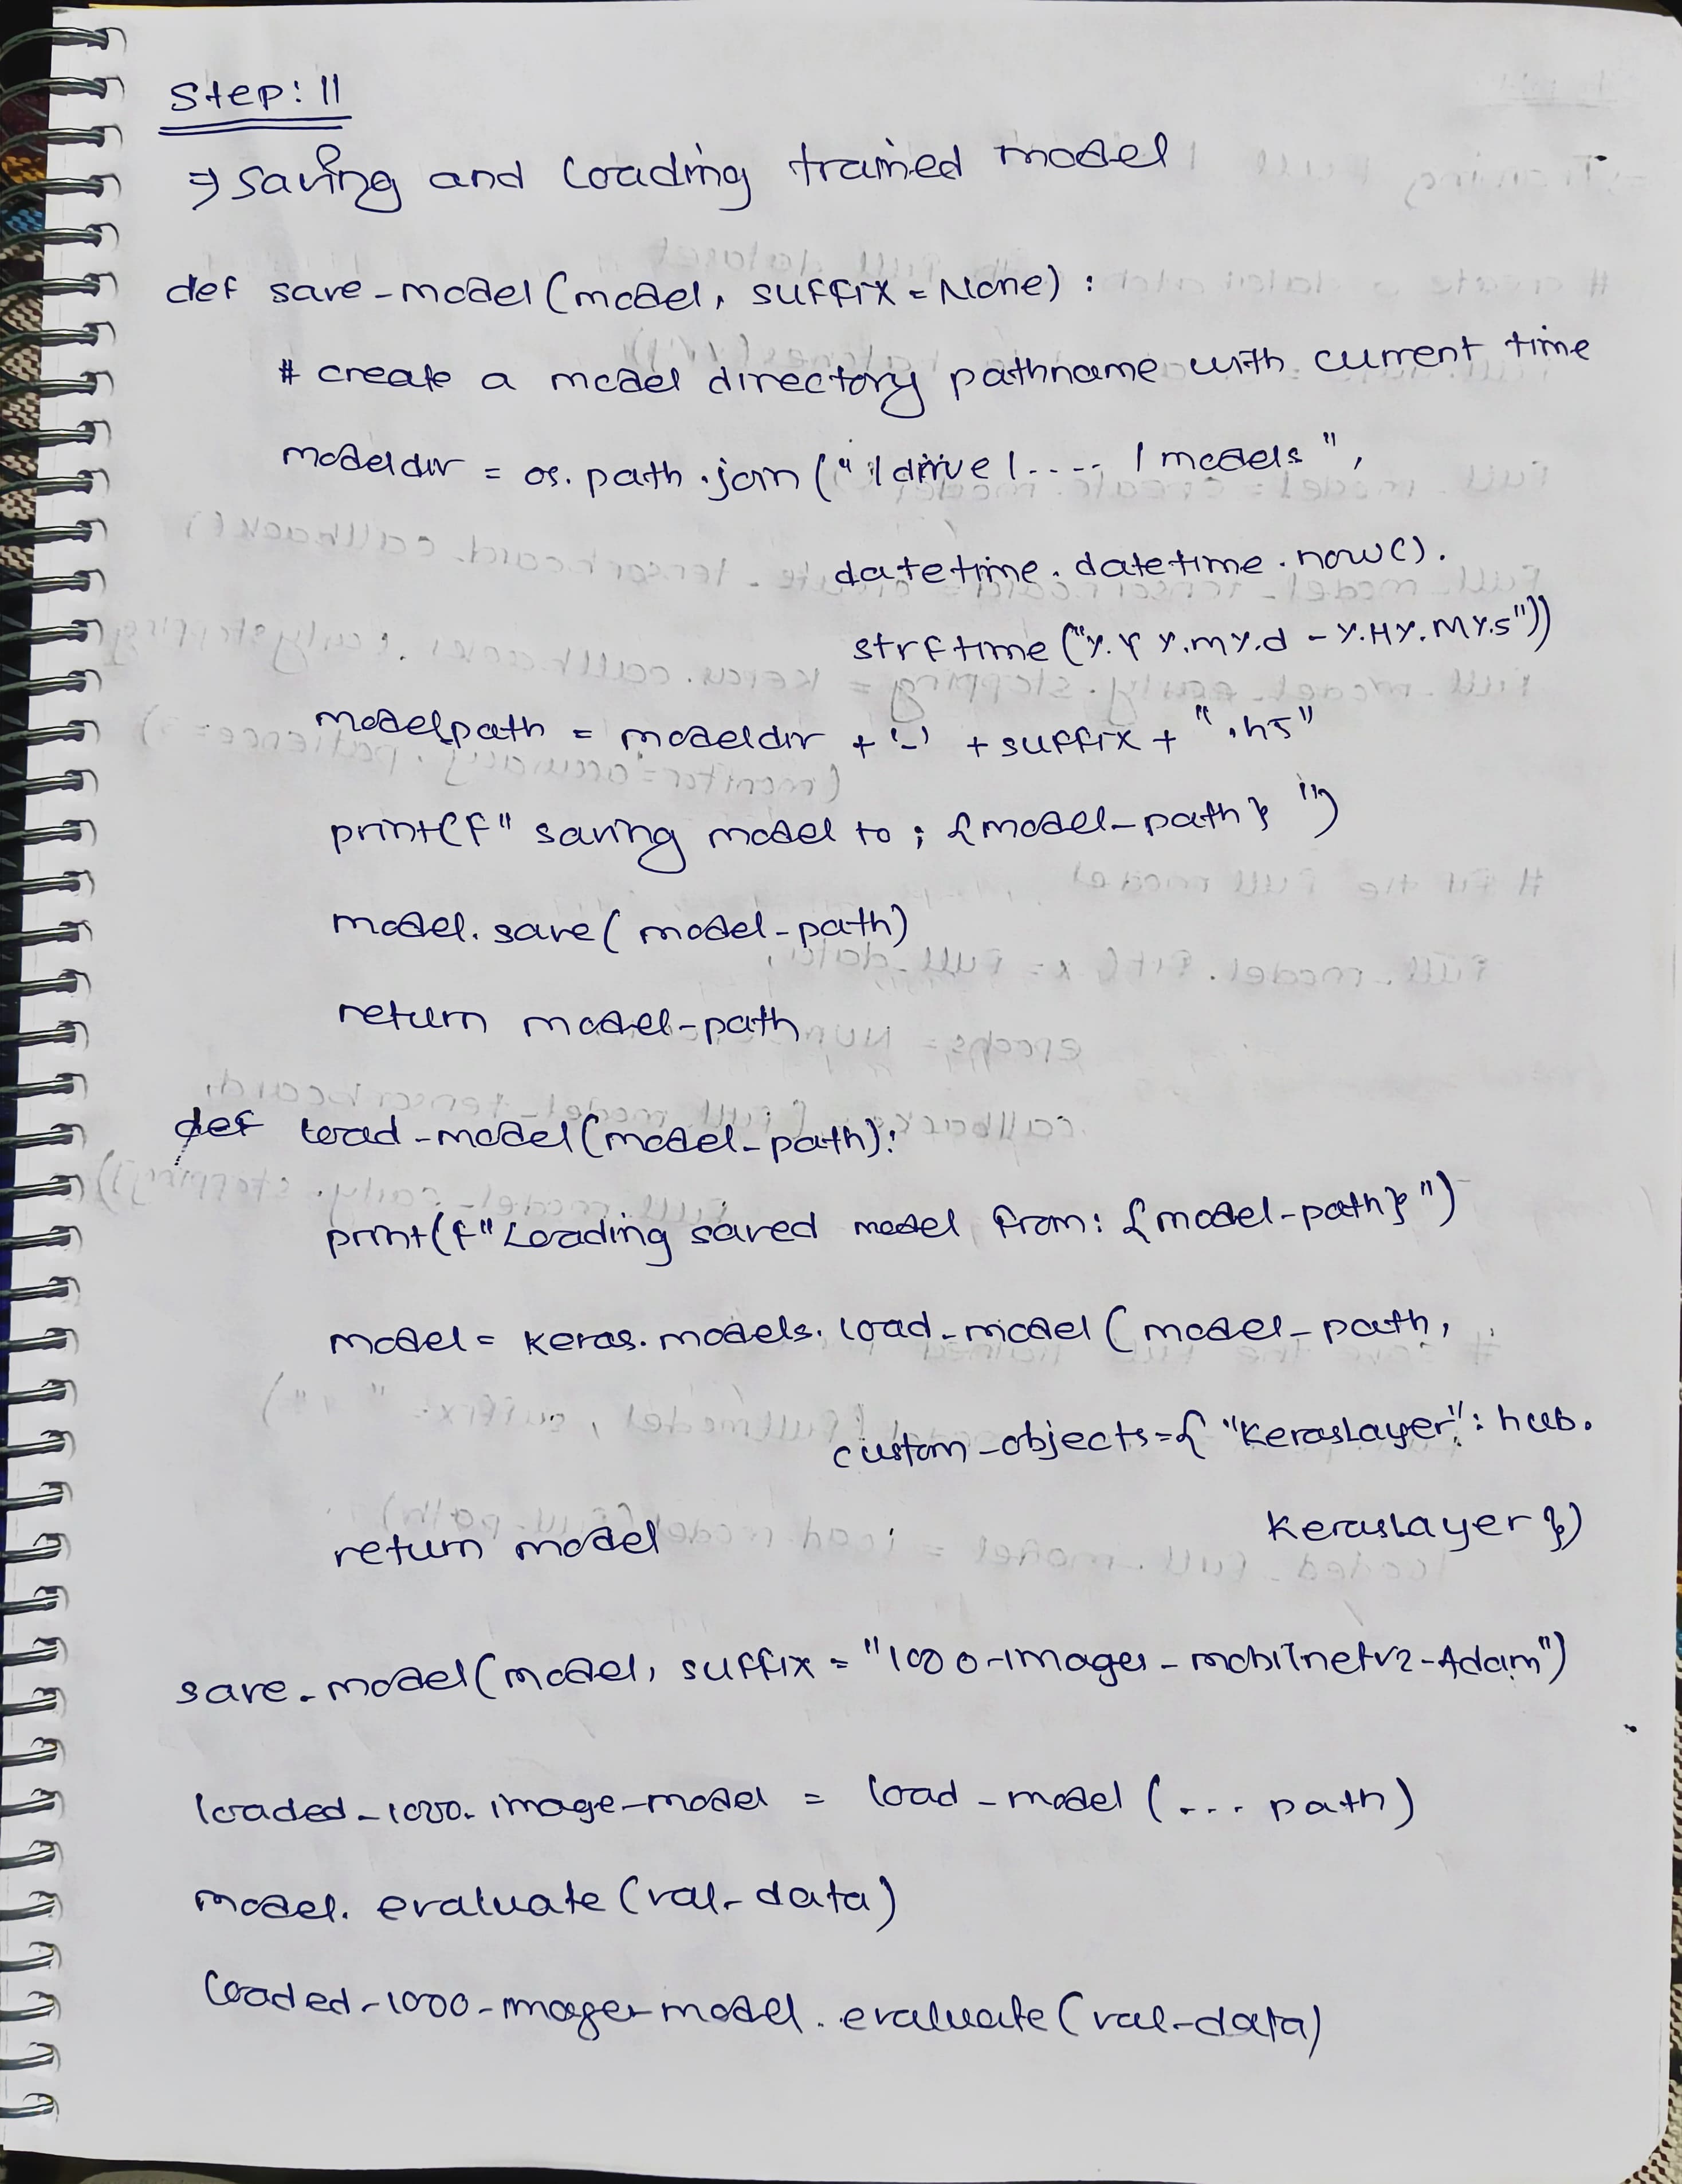 Step: 11
⇒ saving and loading trained model
def save-model(model, suffix = None) :
# create a model directory pathname with current time
modeldir = os.path.join("/drive/..../models",
datetime.datetime.now().
strftime("%Y%m%d-%H%M%s"))
modelpath = modeldir + '-' + suffix + ".h5"
print(f" saving model to ; {model-path} ")
model.save(model-path)
return model-path
def load-model(model-path):
print(f"Loading saved model from: {model-path}")
model = keras.models.load-model(model-path,
custom-objects={ "KerasLayer": hub.
KerasLayer})
return model
save-model(model, suffix = "1000-images-mobilnetv2-Adam")
loaded-1000-image-model = load-model(... path)
model.evaluate(val-data)
loaded-1000-image-model.evaluate(val-data)